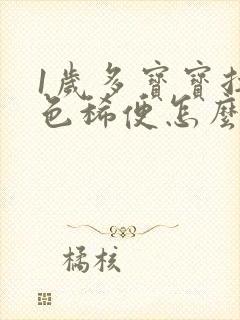 1歲多寶寶拉
色稀便怎麼
橘核